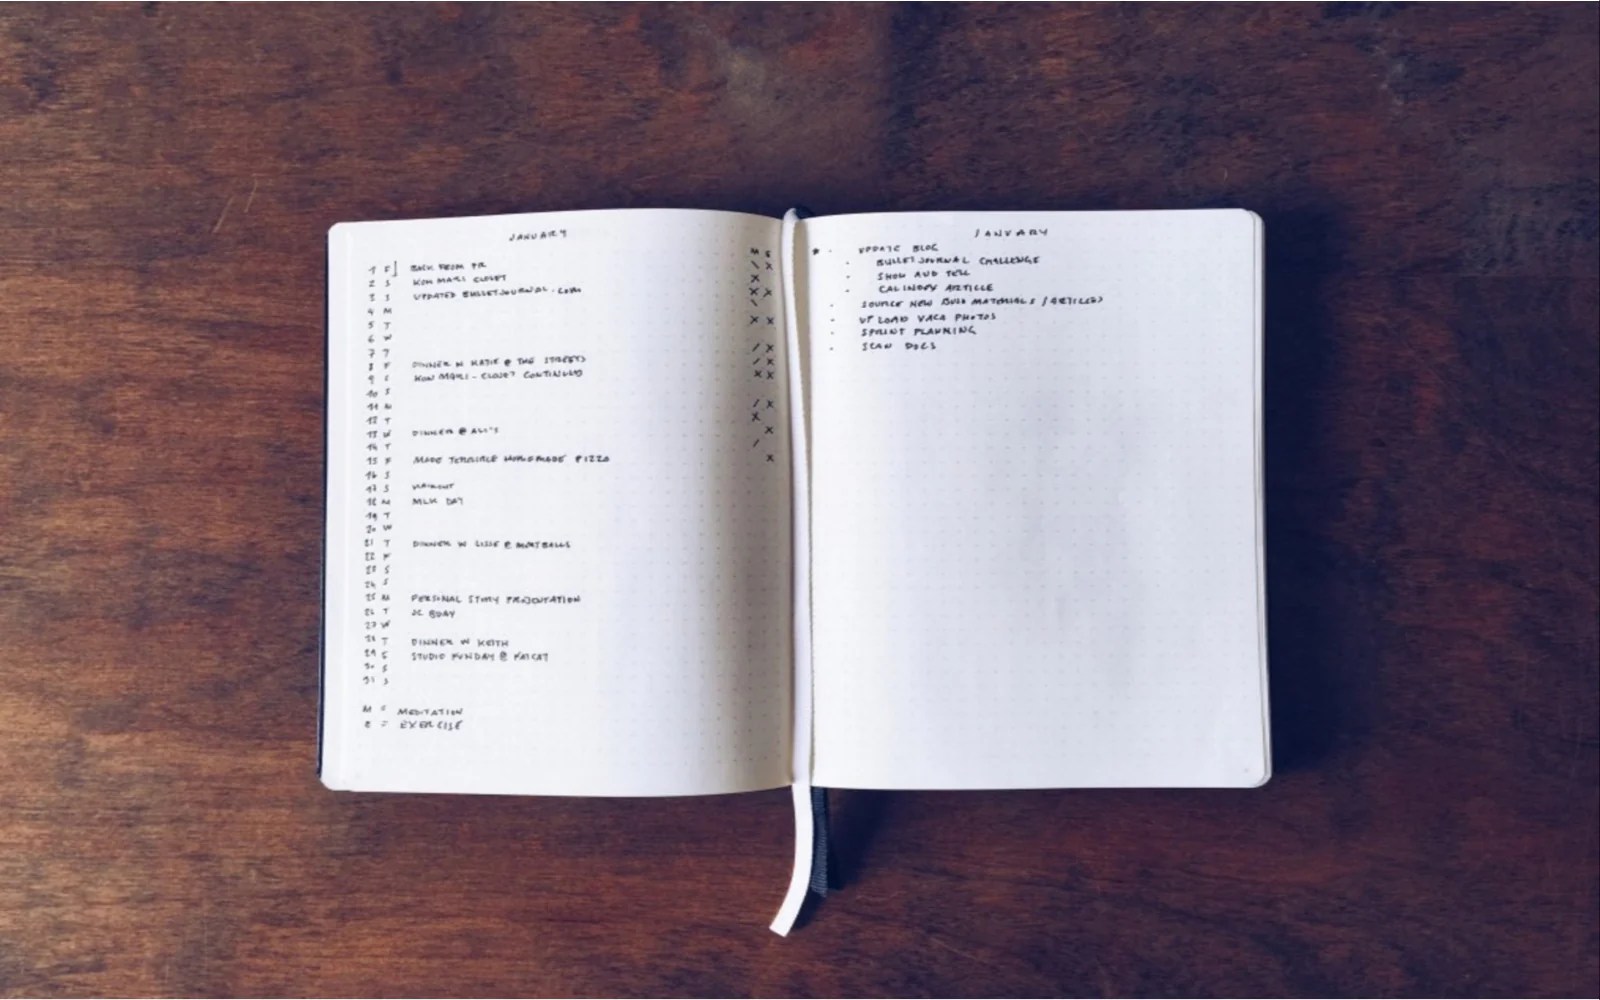 JANUARY
M E
1 F BACK FROM PR / X
2 S KON MARI CLOSET X
3 S UPDATED BULLETJOURNAL.COM X X
4 M \
5 T X X
6 W
7 T / X
8 F DINNER W KATIE @ THE STREETS / X
9 S KON MARI - CLOSET CONTINUED X X
10 S
11 M / X
12 T X
13 W DINNER @ ALI'S X
14 T /
15 F MADE TERRIBLE HOMEMADE PIZZA X
16 S
17 S
18 M MLK DAY
19 T
20 W
21 T DINNER W LISSE @ MEATBALLS
22 F
23 S
24 S
25 M PERSONAL STORY PRESENTATION
26 T BDAY
27 W
28 T DINNER W KEITH
29 F STUDIO FUNDAY @ FATCAT
30 S
31 S
M = MEDITATION
E = EXERCISE
JANUARY
* · UPDATE BLOG
· BULLET JOURNAL CHALLENGE
· SHOW AND TELL
· ARTICLE
· SOURCE NEW BUJO MATERIALS / ARTICLES)
· UPLOAD VACA PHOTOS
· SPRINT PLANNING
· SCAN DOCS